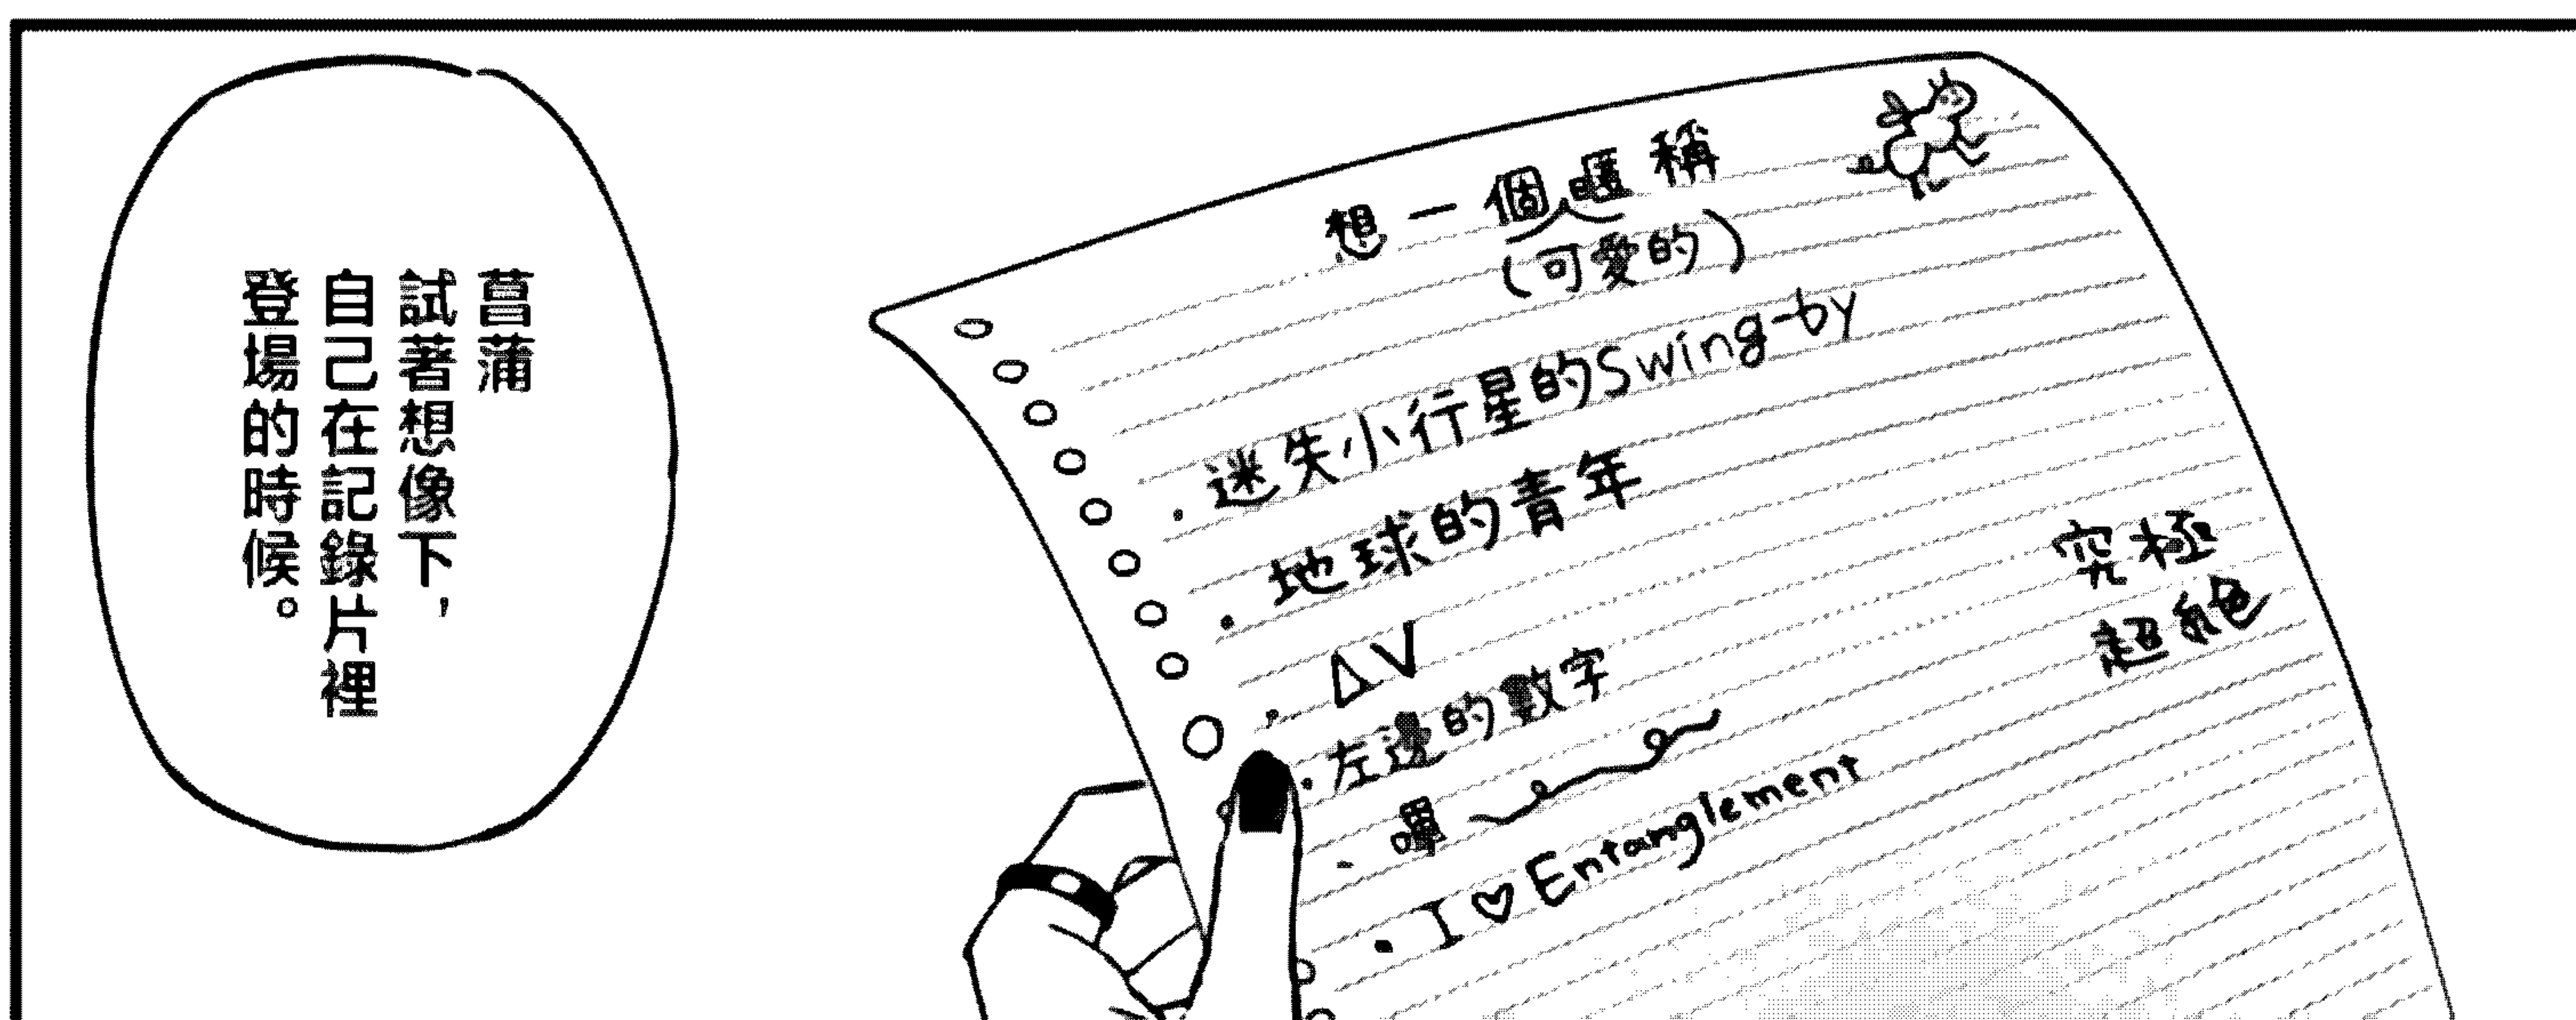 菖蒲
試著想像下，
自己在記錄片裡
登場的時候。
想一個暱稱
(可愛的)
・迷失小行星的Swing-by
・地球的青年
・ΔV
・左邊的數字
・嘿
・I ♡ Entanglement
究極
超